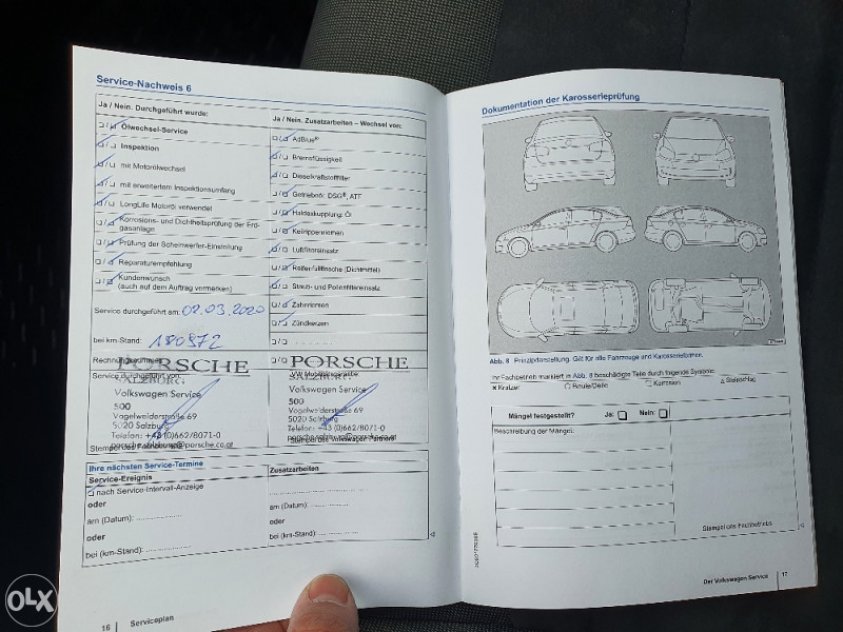 Service-Nachweis 6
Ja / Nein. Durchgeführt wurde:
Ölwechsel-Service
Inspektion
mit Motorölwechsel
mit erweitertem Inspektionsumfang
LongLife Motoröl verwendet
Korrosions- und Dichtheitsprüfung der Erd-
gasanlage
Prüfung der Scheinwerfer-Einstellung
Reparaturempfehlung
Kundenwunsch
(auch auf dem Auftrag vermerken)
Service durchgeführt am: 02.03.2020
bei km-Stand: 180972
Ja / Nein. Zusatzarbeiten – Wechsel von:
AdBlue®
Bremsflüssigkeit
Dieselkraftstofffilter
Getriebeöl: DSG®, ATF
Haldexkupplung: Öl
Keilrippenriemen
Luftfiltereinsatz
Reifenfüllflasche (Dichtmittel)
Staub- und Pollenfiltereinsatz
Zahnriemen
Zündkerzen
PORSCHE
SALZBURG
Volkswagen Service
500
Vogelweiderstraße 69
5020 Salzburg
Telefon: +43 (0)662/8071-0
porsche.salzburg@porsche.co.at
PORSCHE
SALZBURG
Volkswagen Service
500
Vogelweiderstraße 69
5020 Salzburg
Telefon: +43 (0)662/8071-0
Ihre nächsten Service-Termine
Service-Ereignis
nach Service-Intervall-Anzeige
oder
am (Datum):
oder
bei (km-Stand):
Zusatzarbeiten
am (Datum):
oder
bei (km-Stand):
16 Serviceplan
Dokumentation der Karosserieprüfung
Abb. 8 Prinzipdarstellung. Gilt für alle Fahrzeuge und Karosserieformen.
Ihr Fachbetrieb markiert in Abb. 8 beschädigte Teile durch folgende Symbole:
x Kratzer
Beule/Delle
Korrosion
Steinschlag
Mängel festgestellt? Ja: Nein:
Beschreibung der Mängel:
Stempel des Fachbetriebs
Der Volkswagen Service 17
OLX